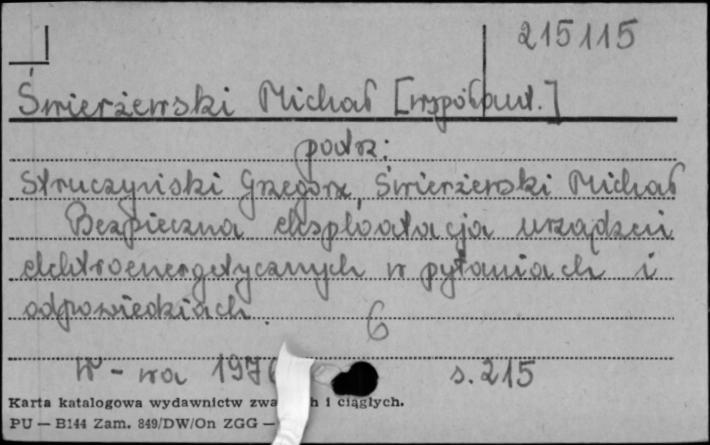 215115
Świerżewski Michał [współaut.]
podrz:
Struczyński Grzegorz, Świerżewski Michał
Bezpieczna eksploatacja urządzeń
elektroenergetycznych w pytaniach i
odpowiedziach.
6
W-wa s. 215
Karta katalogowa wydawnictw i ciągłych.
PU — B144 Zam. 849/DW/On ZGG —